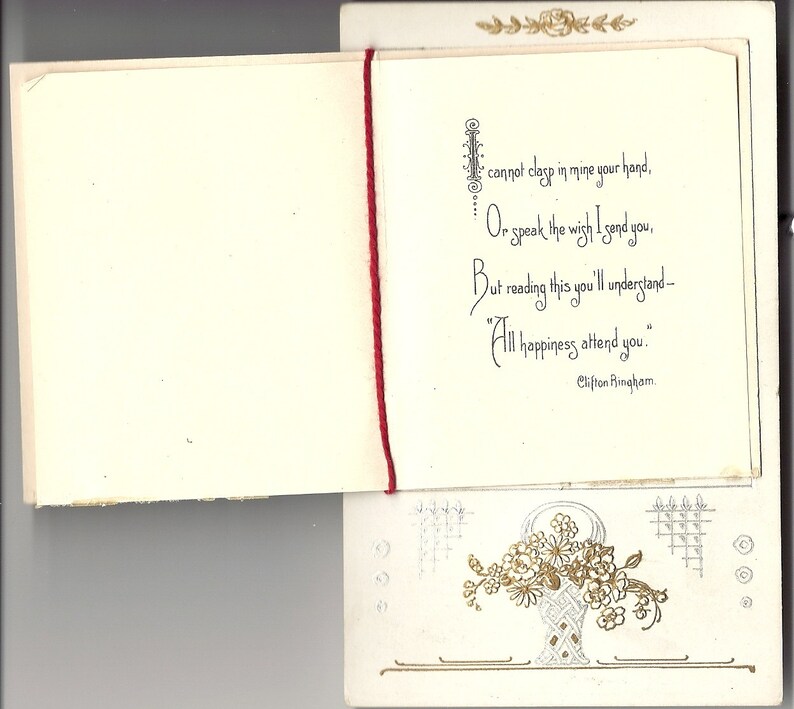 I cannot clasp in mine your hand,
Or speak the wish I send you,
But reading this you'll understand—
"All happiness attend you."
Clifton Bingham.